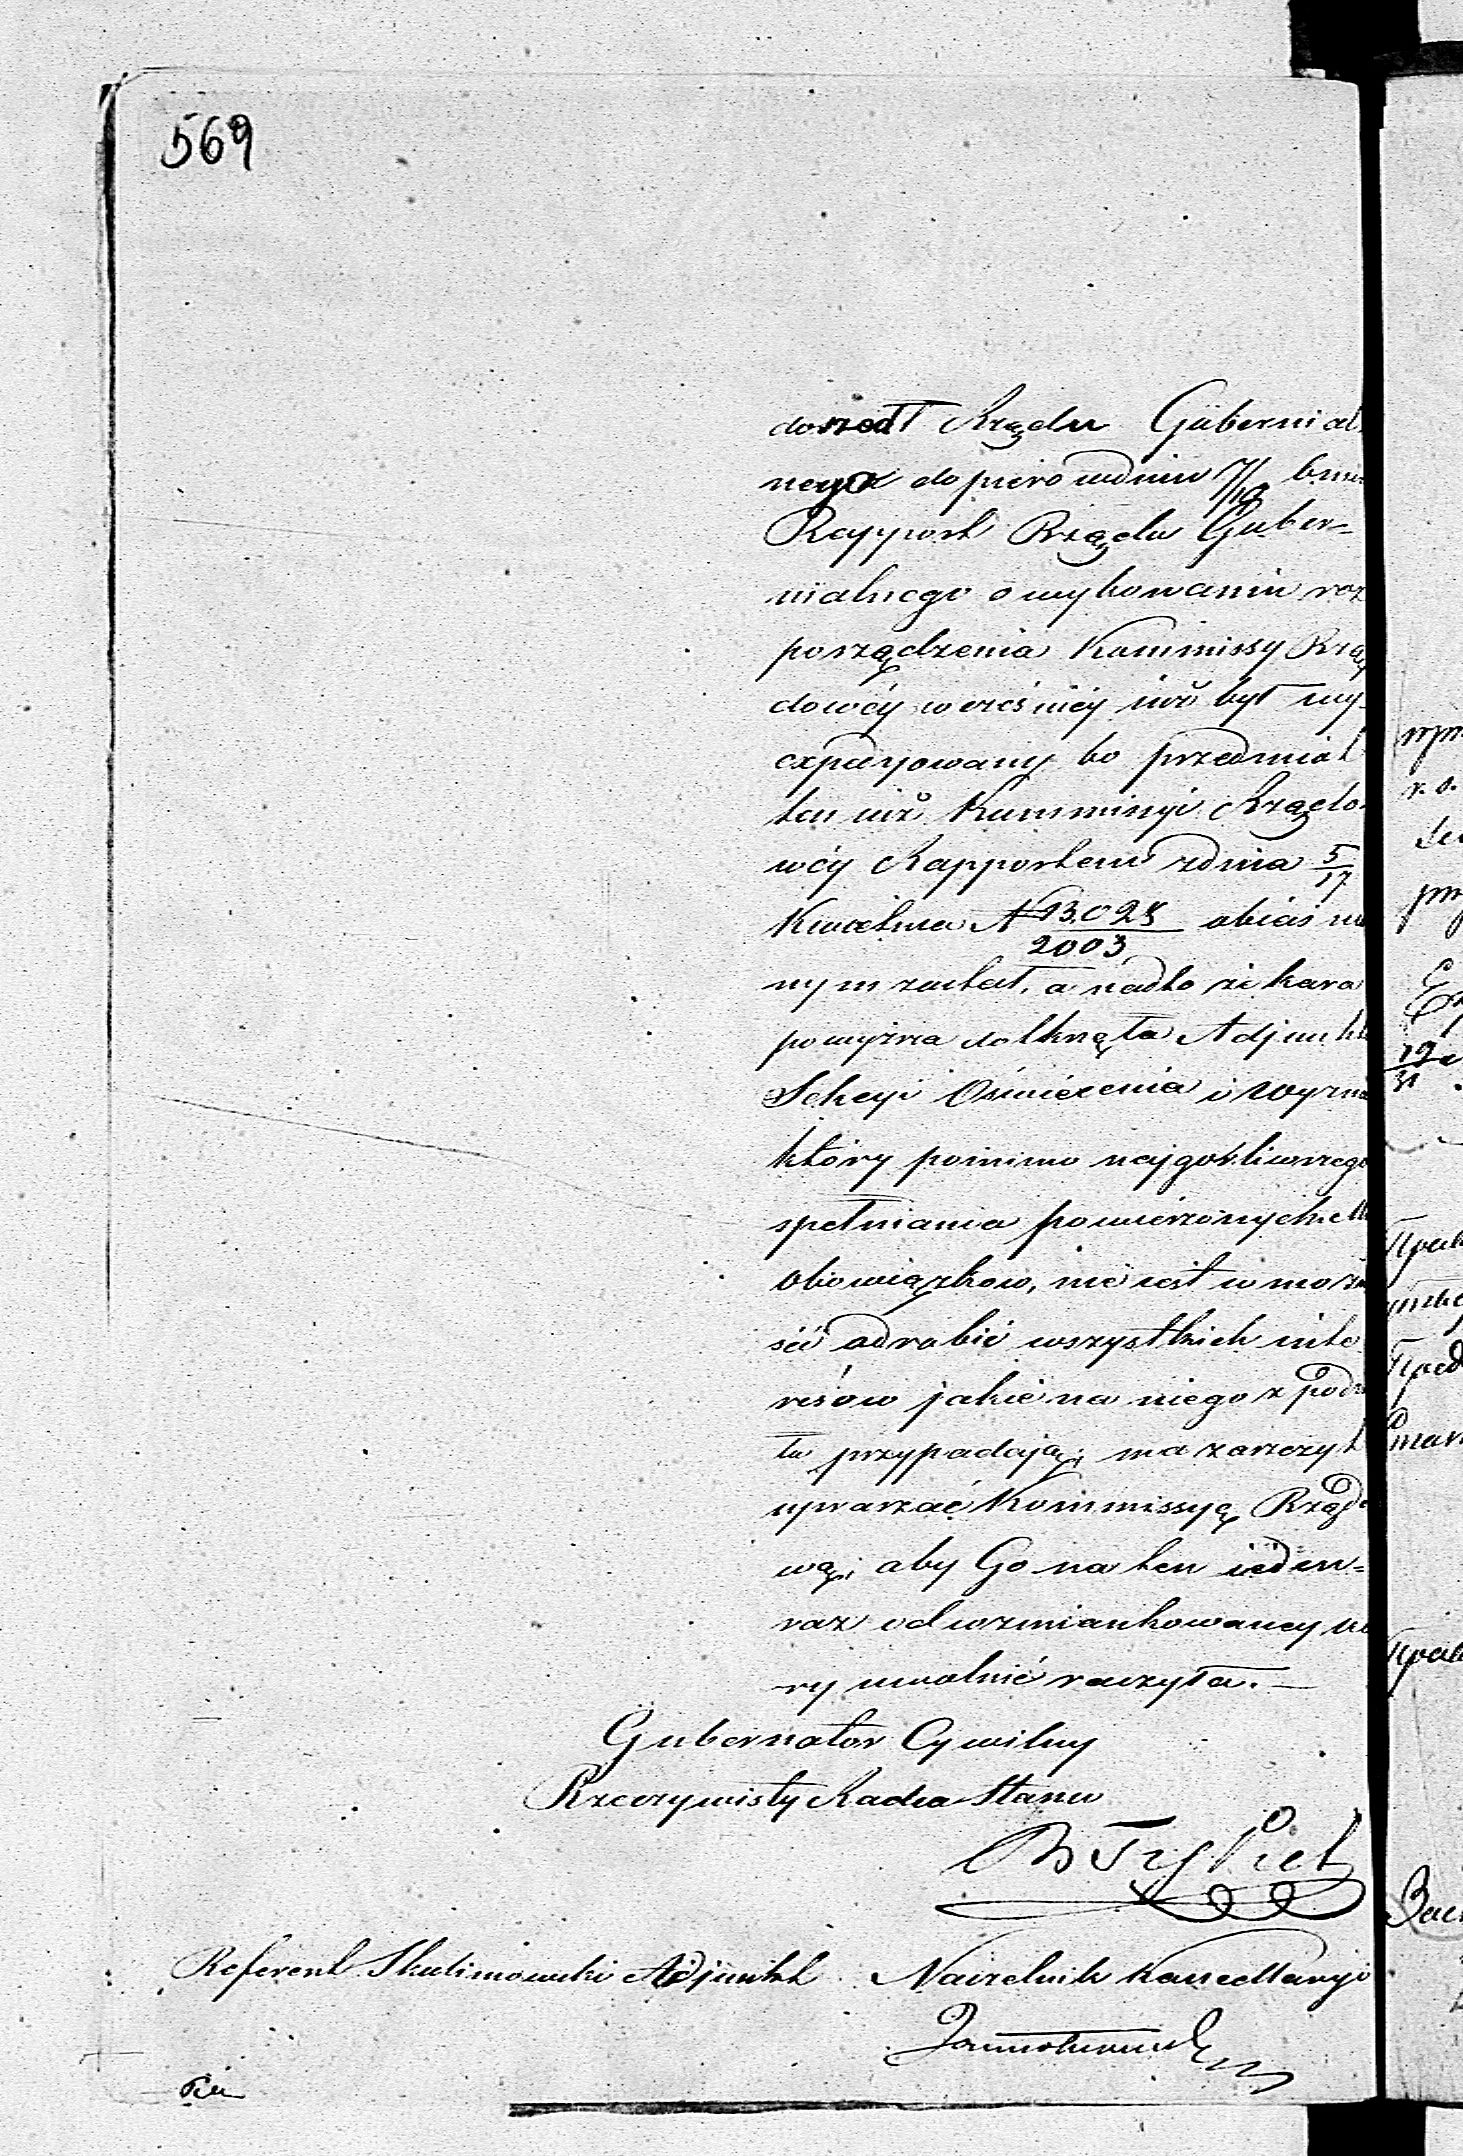 569
doszedł Rządu Gubernial
nego dopiero wdniu 7/19 b.m.
Rapport Rządu Guber=
nialnego o wykonaniu roz
porządzenia Kommissy Rzą
dowéy wcześniéy iuż był wy
expedyowany bo przedmiot
ten iuż Kommissyi Rządo
wéy Rapportem zdnia 5/17
Kwietnia N 13.025/2003 obiaśnio
nym został, a nadto że kara
powyższa dotknęła Adjunkta
Sekcyi Oświecenia i Wyzna
który pomimo najgorliwszego
spełniania powierzonych M
obowiązkow, nie iest w możno
ści odrobić wszystkich inte
resów jakie na niego z podzia
łu przypadają; ma zaszczyt
upraszać Kommissyą Rządo
wą, aby Go na ten ieden=
raz od wzmiankowaney ka
ry uwolnić raczyła. —
Gubernator Cywilny
Rzeczywisty Radca Stanu
Białoskórski
Referent Skulimowski Adjunkt Naczelnik Kancellaryi